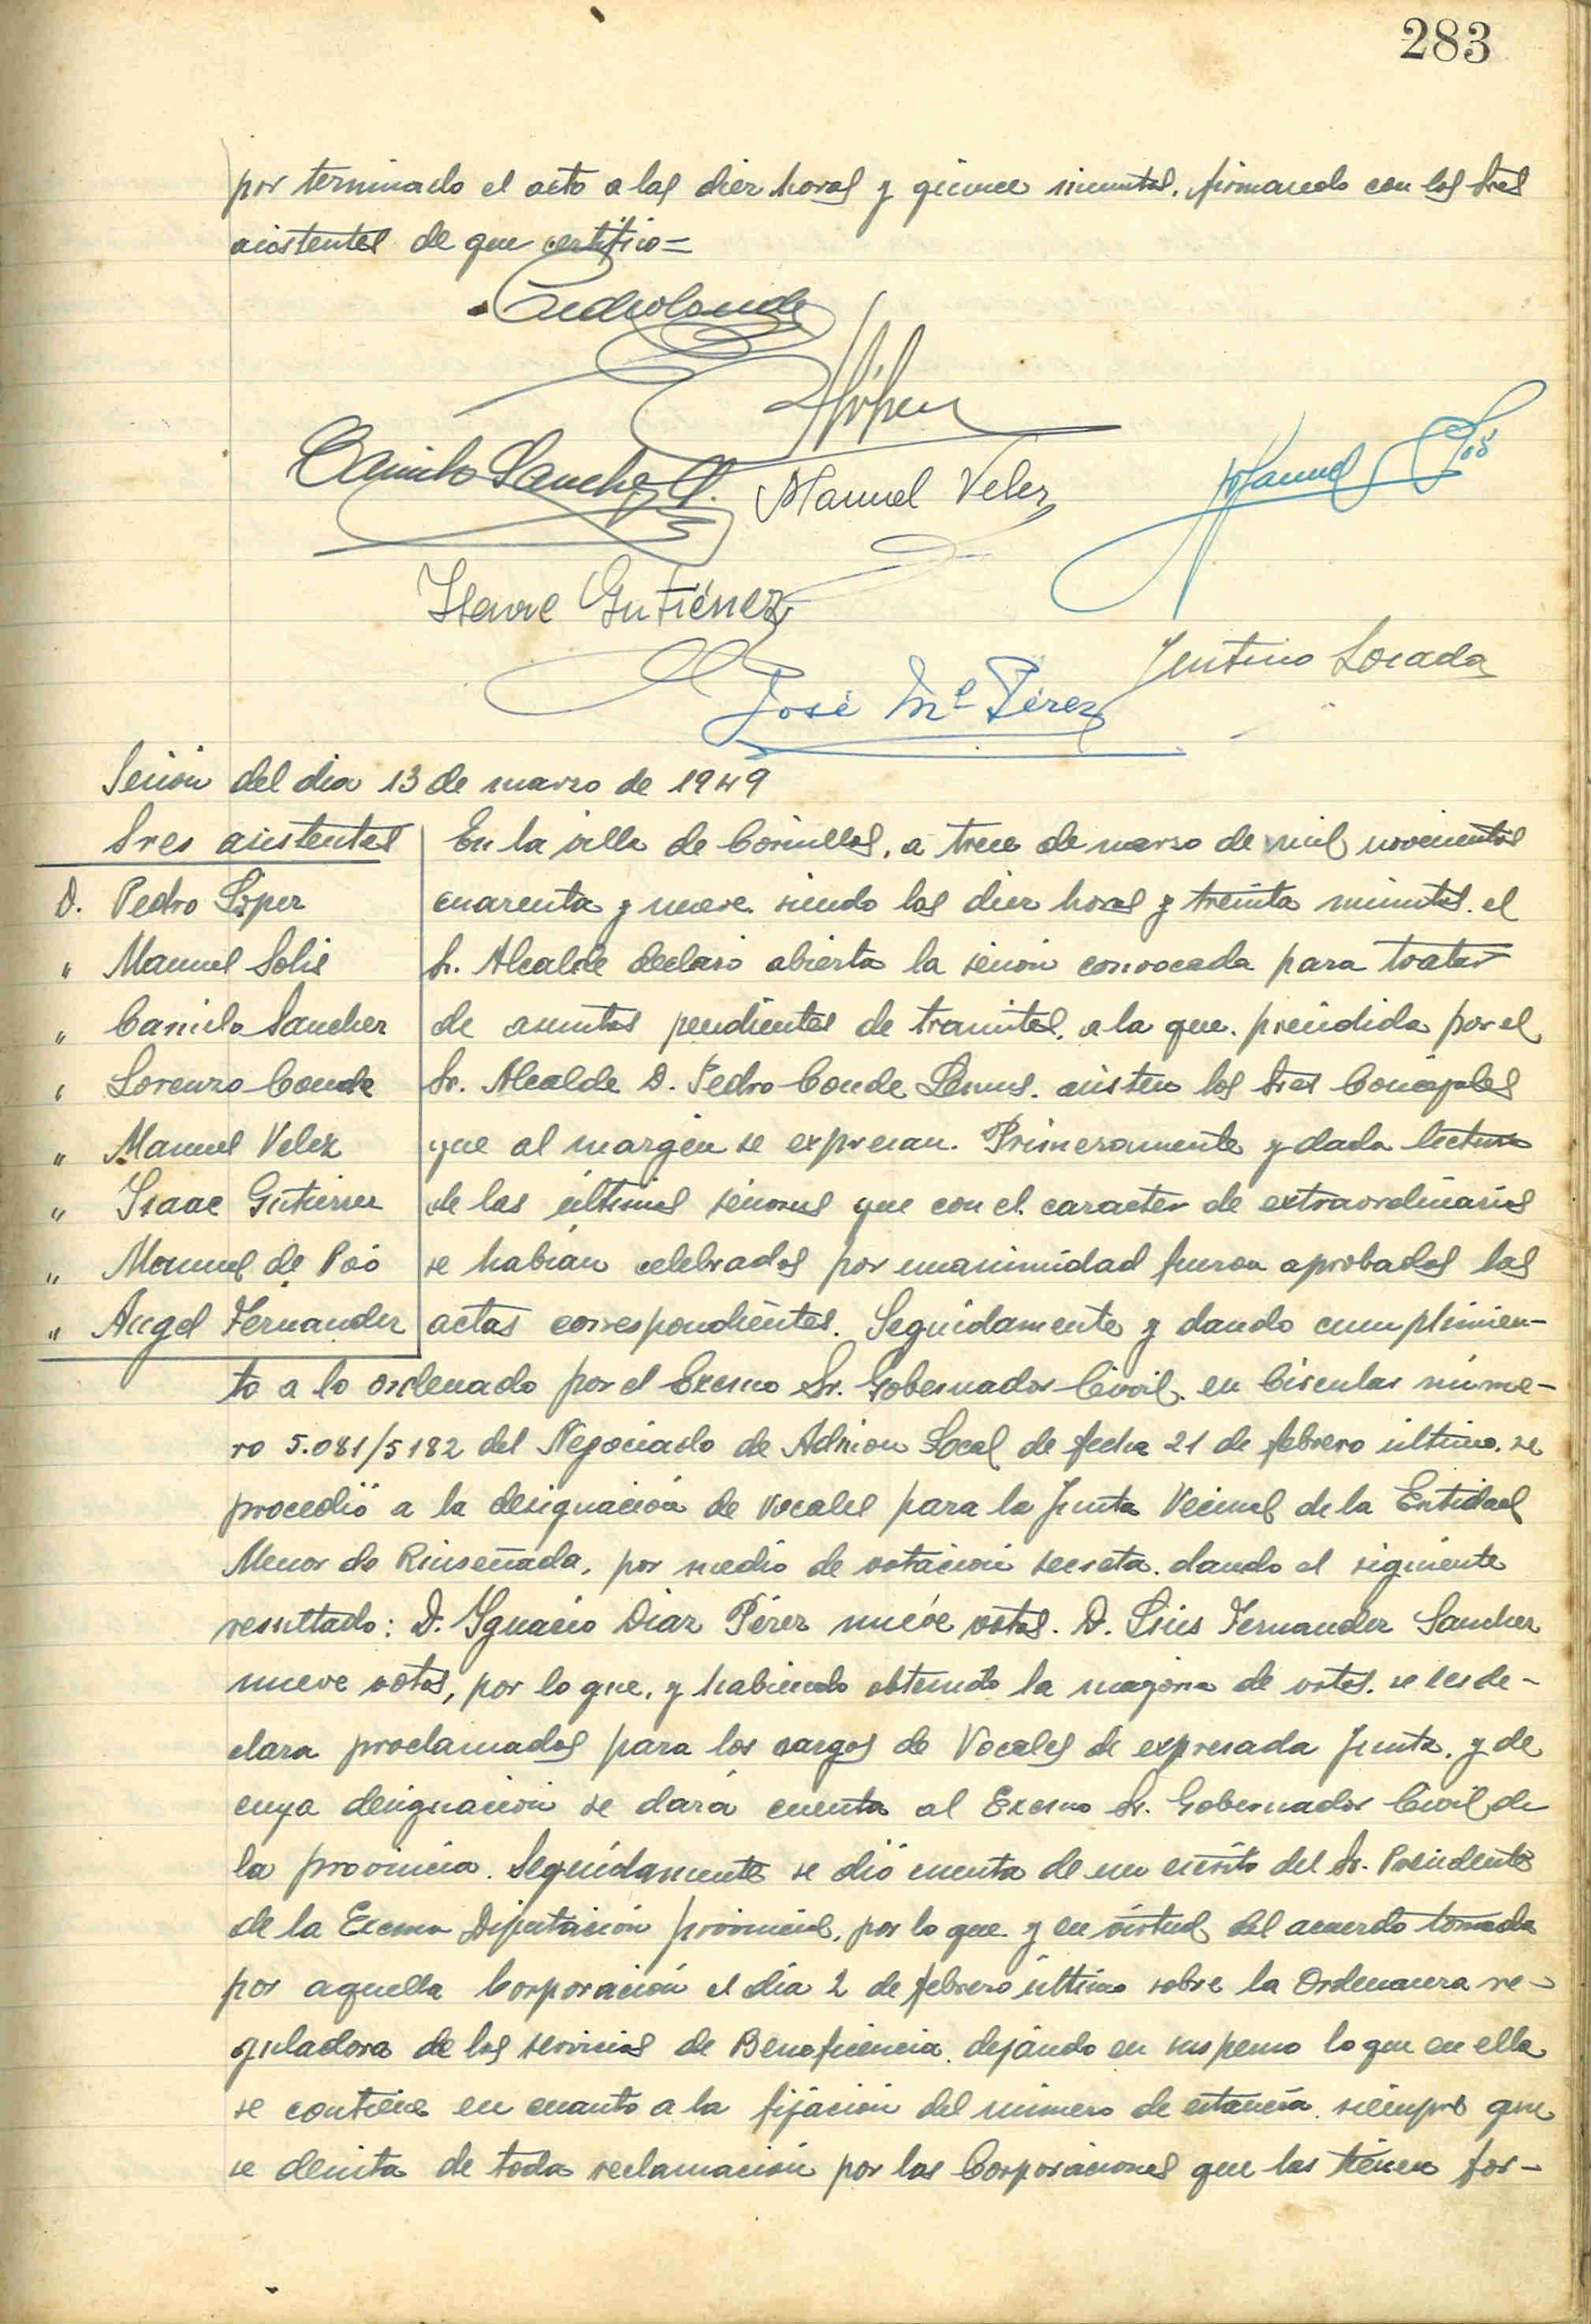 283
por terminado el acto a las diez horas y quince minutos, firmando con los Sres
asistentes de que certifico=
Pedro Conde
López
Camilo Sanchez
Manuel Velez
Manuel Poó
Isaac Gutiérrez
Justino Losada
José Mª Pérez
Sesión del dia 13 de marzo de 1949
Sres asistentes
D. Pedro López
" Manuel Solis
" Camilo Sanchez
" Lorenzo Conde
" Manuel Velez
" Isaac Gutierrez
" Manuel de Poó
" Angel Fernandez
En la villa de Comillas, a trece de marzo de mil novecientos
cuarenta y nueve siendo las diez horas y treinta minutos. el
Sr. Alcalde declaró abierta la sesión convocada para tratar
de asuntos pendientes de tramites. a la que. presidida por el
Sr. Alcalde D. Pedro Conde asisten los Sres Concejales
que al margen se expresan. Primeramente y dada lectura
de las últimas sesiones que con el caracter de extraordinarias
se habían celebrados por unanimidad fueron aprobadas las
actas correspondientes. Seguidamente y dando cumplimien-
to a lo ordenado por el Excmo Sr. Gobernador Civil en Circular núme-
ro 5.081/5182 del Negociado de Admon Local de fecha 21 de febrero último. se
procedió a la designación de vocales para la Junta Vecinal de la Entidad
Menor de Ruiseñada, por medio de votación secreta. dando el siguiente
resultado: D. Ignacio Diaz Pérez nueve votos. D. Luis Fernandez Sanchez
nueve votos, por lo que, y habiendo obtenido la mayoria de votos. se les de-
clara proclamados para los cargos de Vocales de expresada Junta, y de
cuya designación se dará cuenta al Excmo Sr. Gobernador Civil de
la provincia. Seguidamente se dió cuenta de un escrito del Sr. Presidente
de la Excma Diputación provincial, por lo que y en virtud del acuerdo tomado
por aquella Corporación el día 2 de febrero último sobre la Ordenanza re-
guladora de los servicios de Beneficencia. dejando en suspenso lo que en ella
se contiene en cuanto a la fijación del número de estancia. siempre que
se desista de toda reclamación por las Corporaciones que las tienen for-